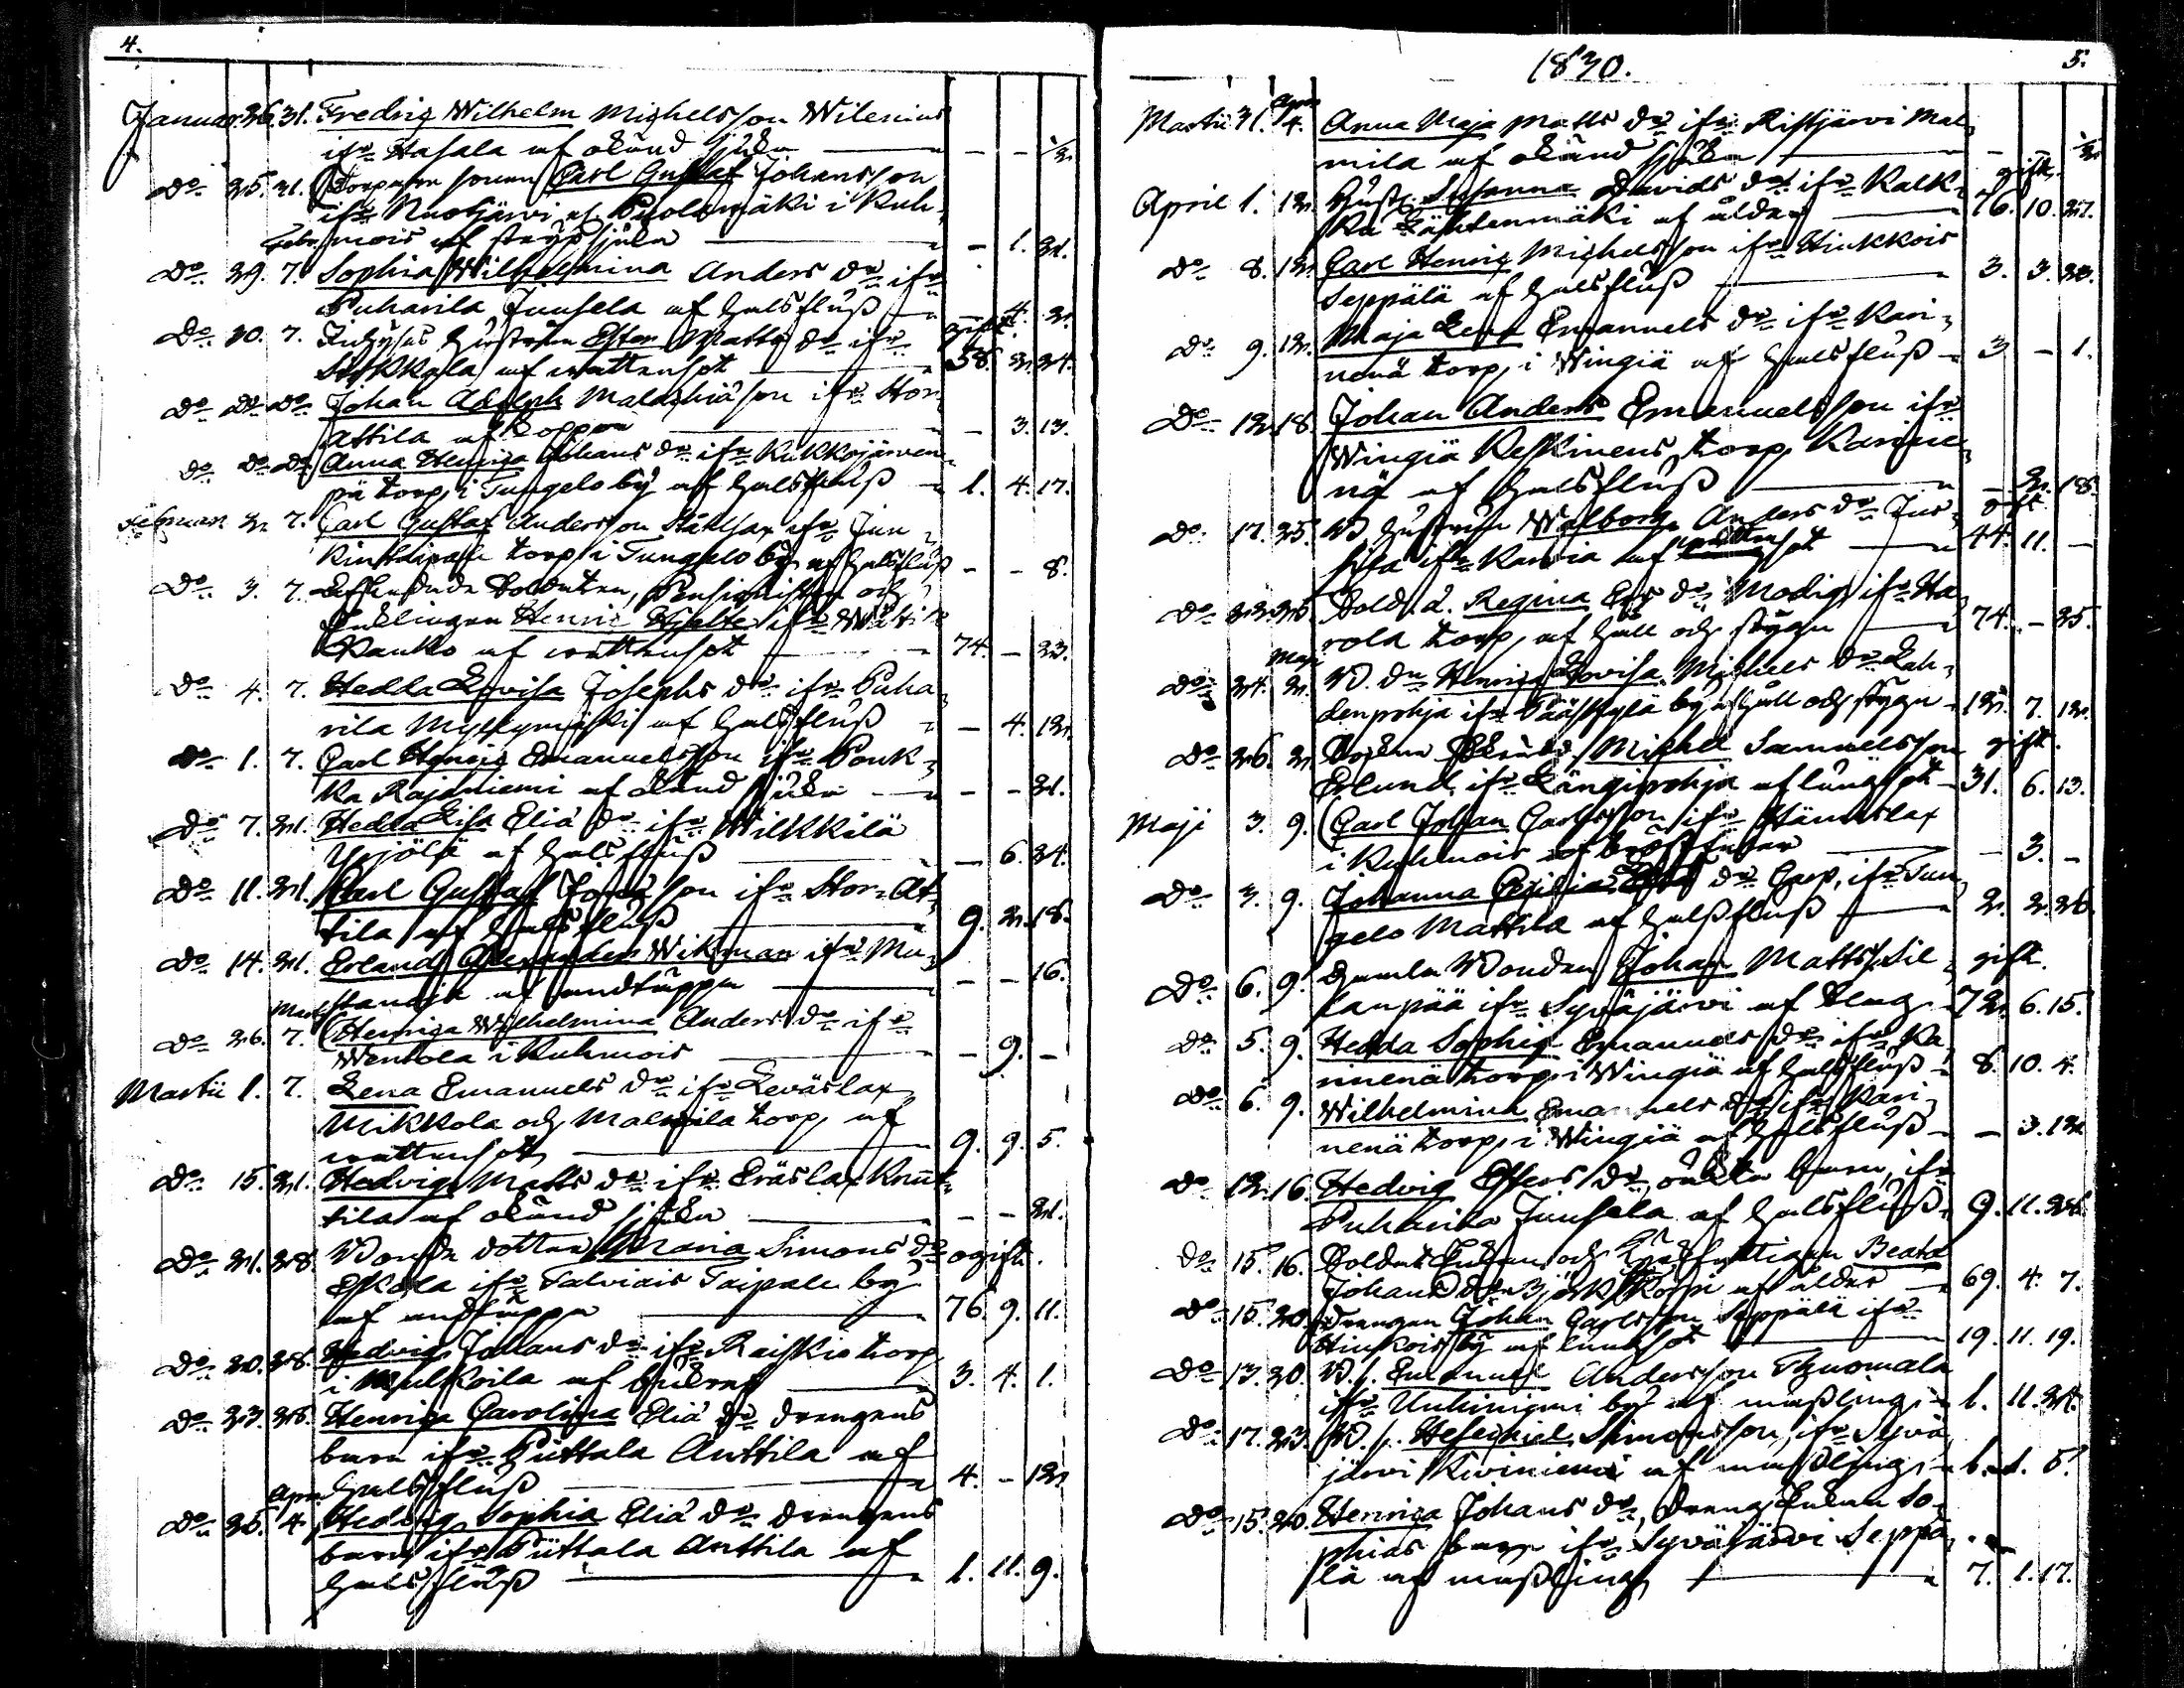 4.
Januar. 26. 31. Fredric Wilhelm Michelsson Wilenius
ifr. Hasala af okänd sjuka — - - ½
Do 25. 31. Torparesonen Carl Gustaf Johansson
ifr. Ruotjärvi Puolamäki i Kuh-
mois af stryp sjuka - 1. 21.
Do 29. Febr. 7. Sophia Wilhelmina Anders dr ifr
Puharila Juusela af halsfluss - 4. 2.
Do 30. 7. Hustrun Ester Matts dr ifr gift.
af wattusot 58. 2. 24.
Do Do Do Johan Adolph ifr Stor
Attila af Koppor - 3. 13.
Do Do Do Anna Henrica Johans dr ifr Kukkojärven-
pä torp, i Tungelo by af halsfluss 1. 4. 17.
Februari 2. 7. Carl Gustaf Andersson ifr
torp i Tungelo by af halsfluss - - 8.
Do 3. 7. Soldaten, Pensionisten och
Enklingen Henric Hjelte ifr
Pauko af wattusot 74. - 23.
Do 4. 7. Hedda Lovisa Josephs dr ifr Puha-
rila Myllymäki af halsfluss - 4. 12.
Do 1. 7. Carl Henric Emanuelsson ifr Pouk-
ka Rajaniemi af okänd sjuka - - 21.
Do 7. 21. Hedda Lisa Eliæ dr ifr Wilkkilä
Yrjölä af halsfluss - 6. 24.
Do 11. 21. Carl Gustaf son ifr Stor-At-
tila af halsfluss 9. 2. 18.
Do 14. 21. Erland Alexander Wikman ifr Mu-
af andtäppa - - 16.
Do 26. Mart. 7. Henrica Wilhelmina Anders dr ifr
Wentola i Kuhmois - 9. -
Martii 1. 7. Lena Emanuels dr ifr Leväslax
Mikkola och Malmila torp, af
wattusot 9. 9. 5.
Do 15. 21. Hedvig Matts dr ifr Eräslax Knut-
tila af okänd sjuka - - 21.
Do 21. 28. Bonde dottern Maria Simons dr ogift.
Eskola ifr Talviais Taipale by
af andtäppa 76. 9. 11.
Do 20. 28. Hedvig Johans dr ifr Raiskio torp
i Mulkoila af 3. 4. 1.
Do 23. 28. Henrica Carolina Eliæ dr drengens
barn ifr Püttala Anttila af
halsfluss 4. - 12
Do 25. Apr. 4. Hedvig Sophia Eliæ dr drengens
barn ifr Püttala Anttila af
halsfluss 1. 11. 9.
1830.
5.
Martii 31. Apr. 4. Anna Maja Matts dr ifr Ristjärvi Mal-
mila af okänd sjuka - - ½
April 1. 12. Hustr. Susanna Davids dr ifr Kalk- gift.
ka Lähtenmäki af ålder 76. 10. 27.
Do 8. 12. Carl Henric Michelsson ifr Hinkkois
Seppälä af halsfluss 3. 3. 23.
Do 9. 12. Maja Lena Emanuels dr ifr Kari-
nenä torp, i Wingiä af halsfluss 3 - 1.
Do 12. 18. Johan Anders Emanuelsson ifr
Wingiä Keskinens torp, Karine-
nä af halsfluss - 2. 18.
Do 17. 25. B. hustrun Walborg Anders dr Jus- gift
sila ifr Karvia af wattusot 44. 11. -
Do 22. 25. Sold. Regina Ers dr Modig, ifr Ha-
rola torp, af håll och stygn 74. - 25.
Do 24. Maji 2. B. dr Henrica Lovisa Michels dr Lah-
denpohja ifr Pääskylä by af håll och stygn 12. 7. 12.
Do 26. 2. Michel Samuelsson gift.
Erlund ifr Längipohja af lungsot 31. 6. 13.
Maji 3. 9. Carl Johan Carlsson ifr Hännislax
i Kuhmois af - 3. -
Do 3. 9. Johanna Cecilia dr ifr Tun-
gelo Mattila af halsfluss 2. 2. 26.
Do 6. 9. Gamla Bonden Johan Mattss. Sil- gift.
lanpää ifr Syväjärvi af 72. 6. 15.
Do 5. 9. Hedda Sophia Emanuels dr ifr Ka-
rinenä torp, i Wingiä af halsfluss 8. 10. 4.
Do 6. 9. Wilhelmina Emanuels dr ifr Kari-
nenä torp, i Wingiä af halsfluss - 3. 12.
Do 12. 16. Hedvig Esters dr, oäkta barn, ifr
Puharila Juusela af halsfluss 9. 11. 26.
Do 15. 16. Soldat Enkan och Beata
Johans dr af ålder 69. 4. 7.
Do 15. 20. Drengen Johan Carlsson Seppälä ifr
Hinkois by af lungsot 19. 11. 19.
Do 13. 20. B. s. Emanuel Andersson Thuomala
ifr Unhiniemi by af mässling 1. 11. 24.
Do 17. 23. B. s. Hesechiel Simonsson ifr Syvä-
järvi Kiviniemi af mässling 1. 5.
Do 15. 20. Henrica Johans dr, dreng Enkan So-
phias barn ifr Syväjärvi Seppä-
lä af mässling 7. 1. 17.